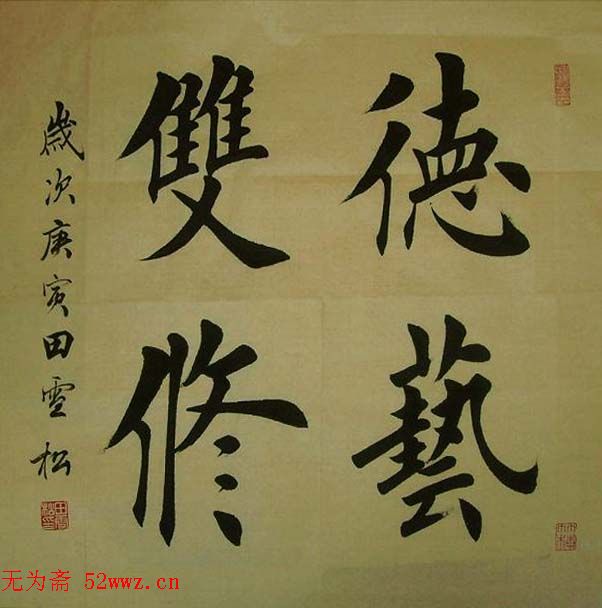 德藝
雙修
歲次庚寅田雪松
无为斋 52wwz.cn